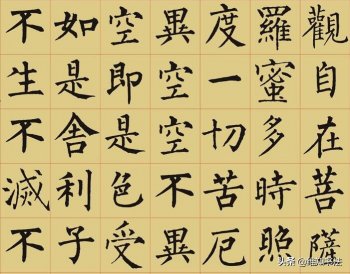 觀自在菩薩
羅蜜多時照
度一切苦厄
異空空不異
空即是色受
如是舎利子
不生不滅不
头条